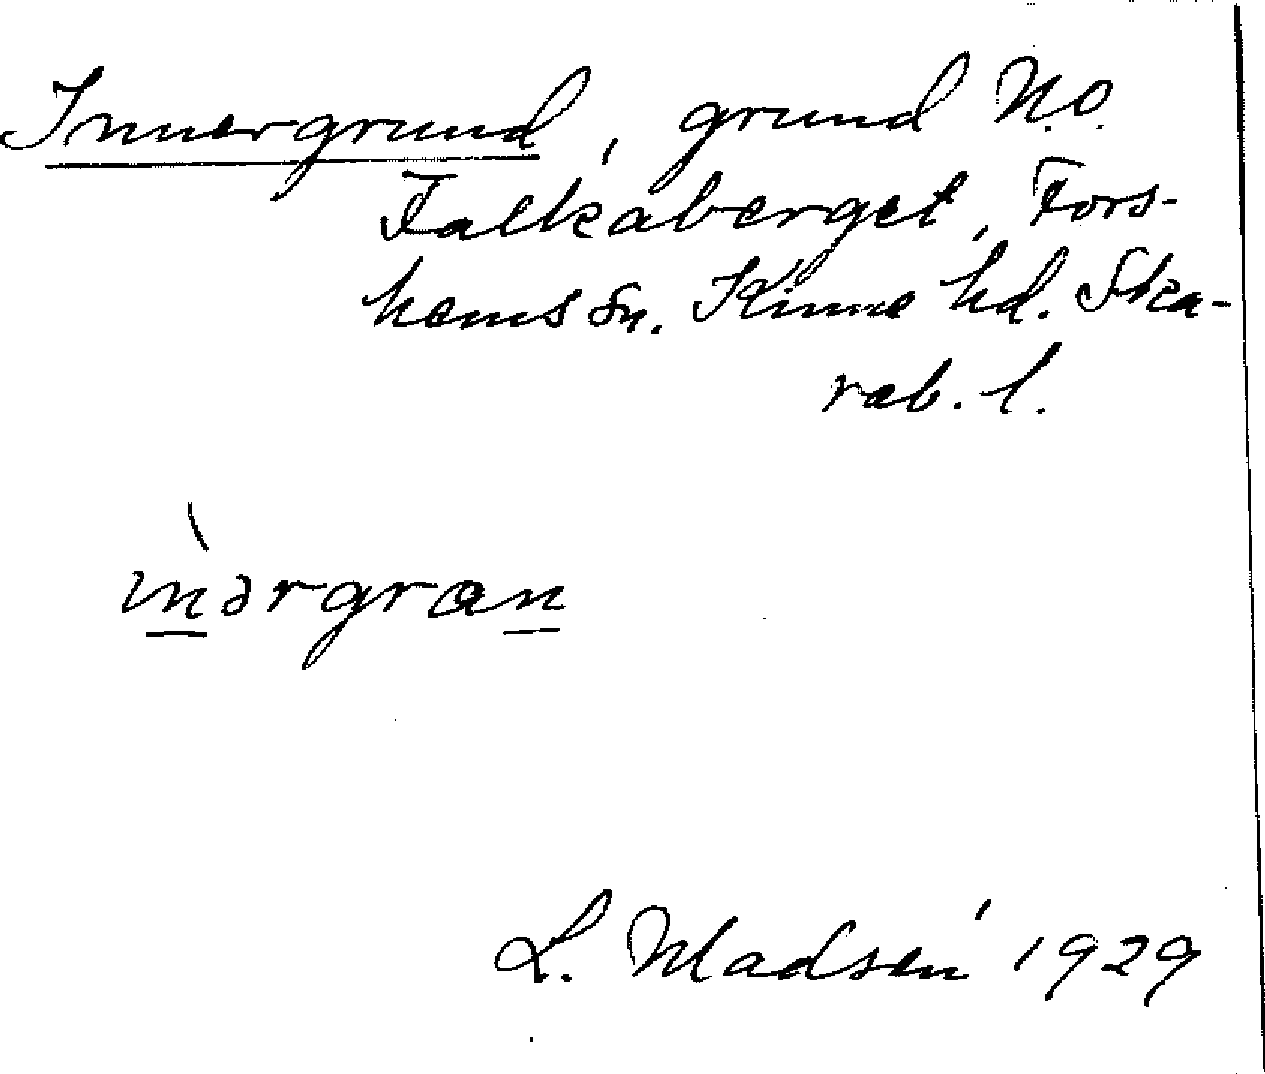 Innergrund, grund N.O.
Falkaberget, Fors-
hems sn. Kinne hd. Ska-
rab. l.
ìnərgran
L. Madsén 1929